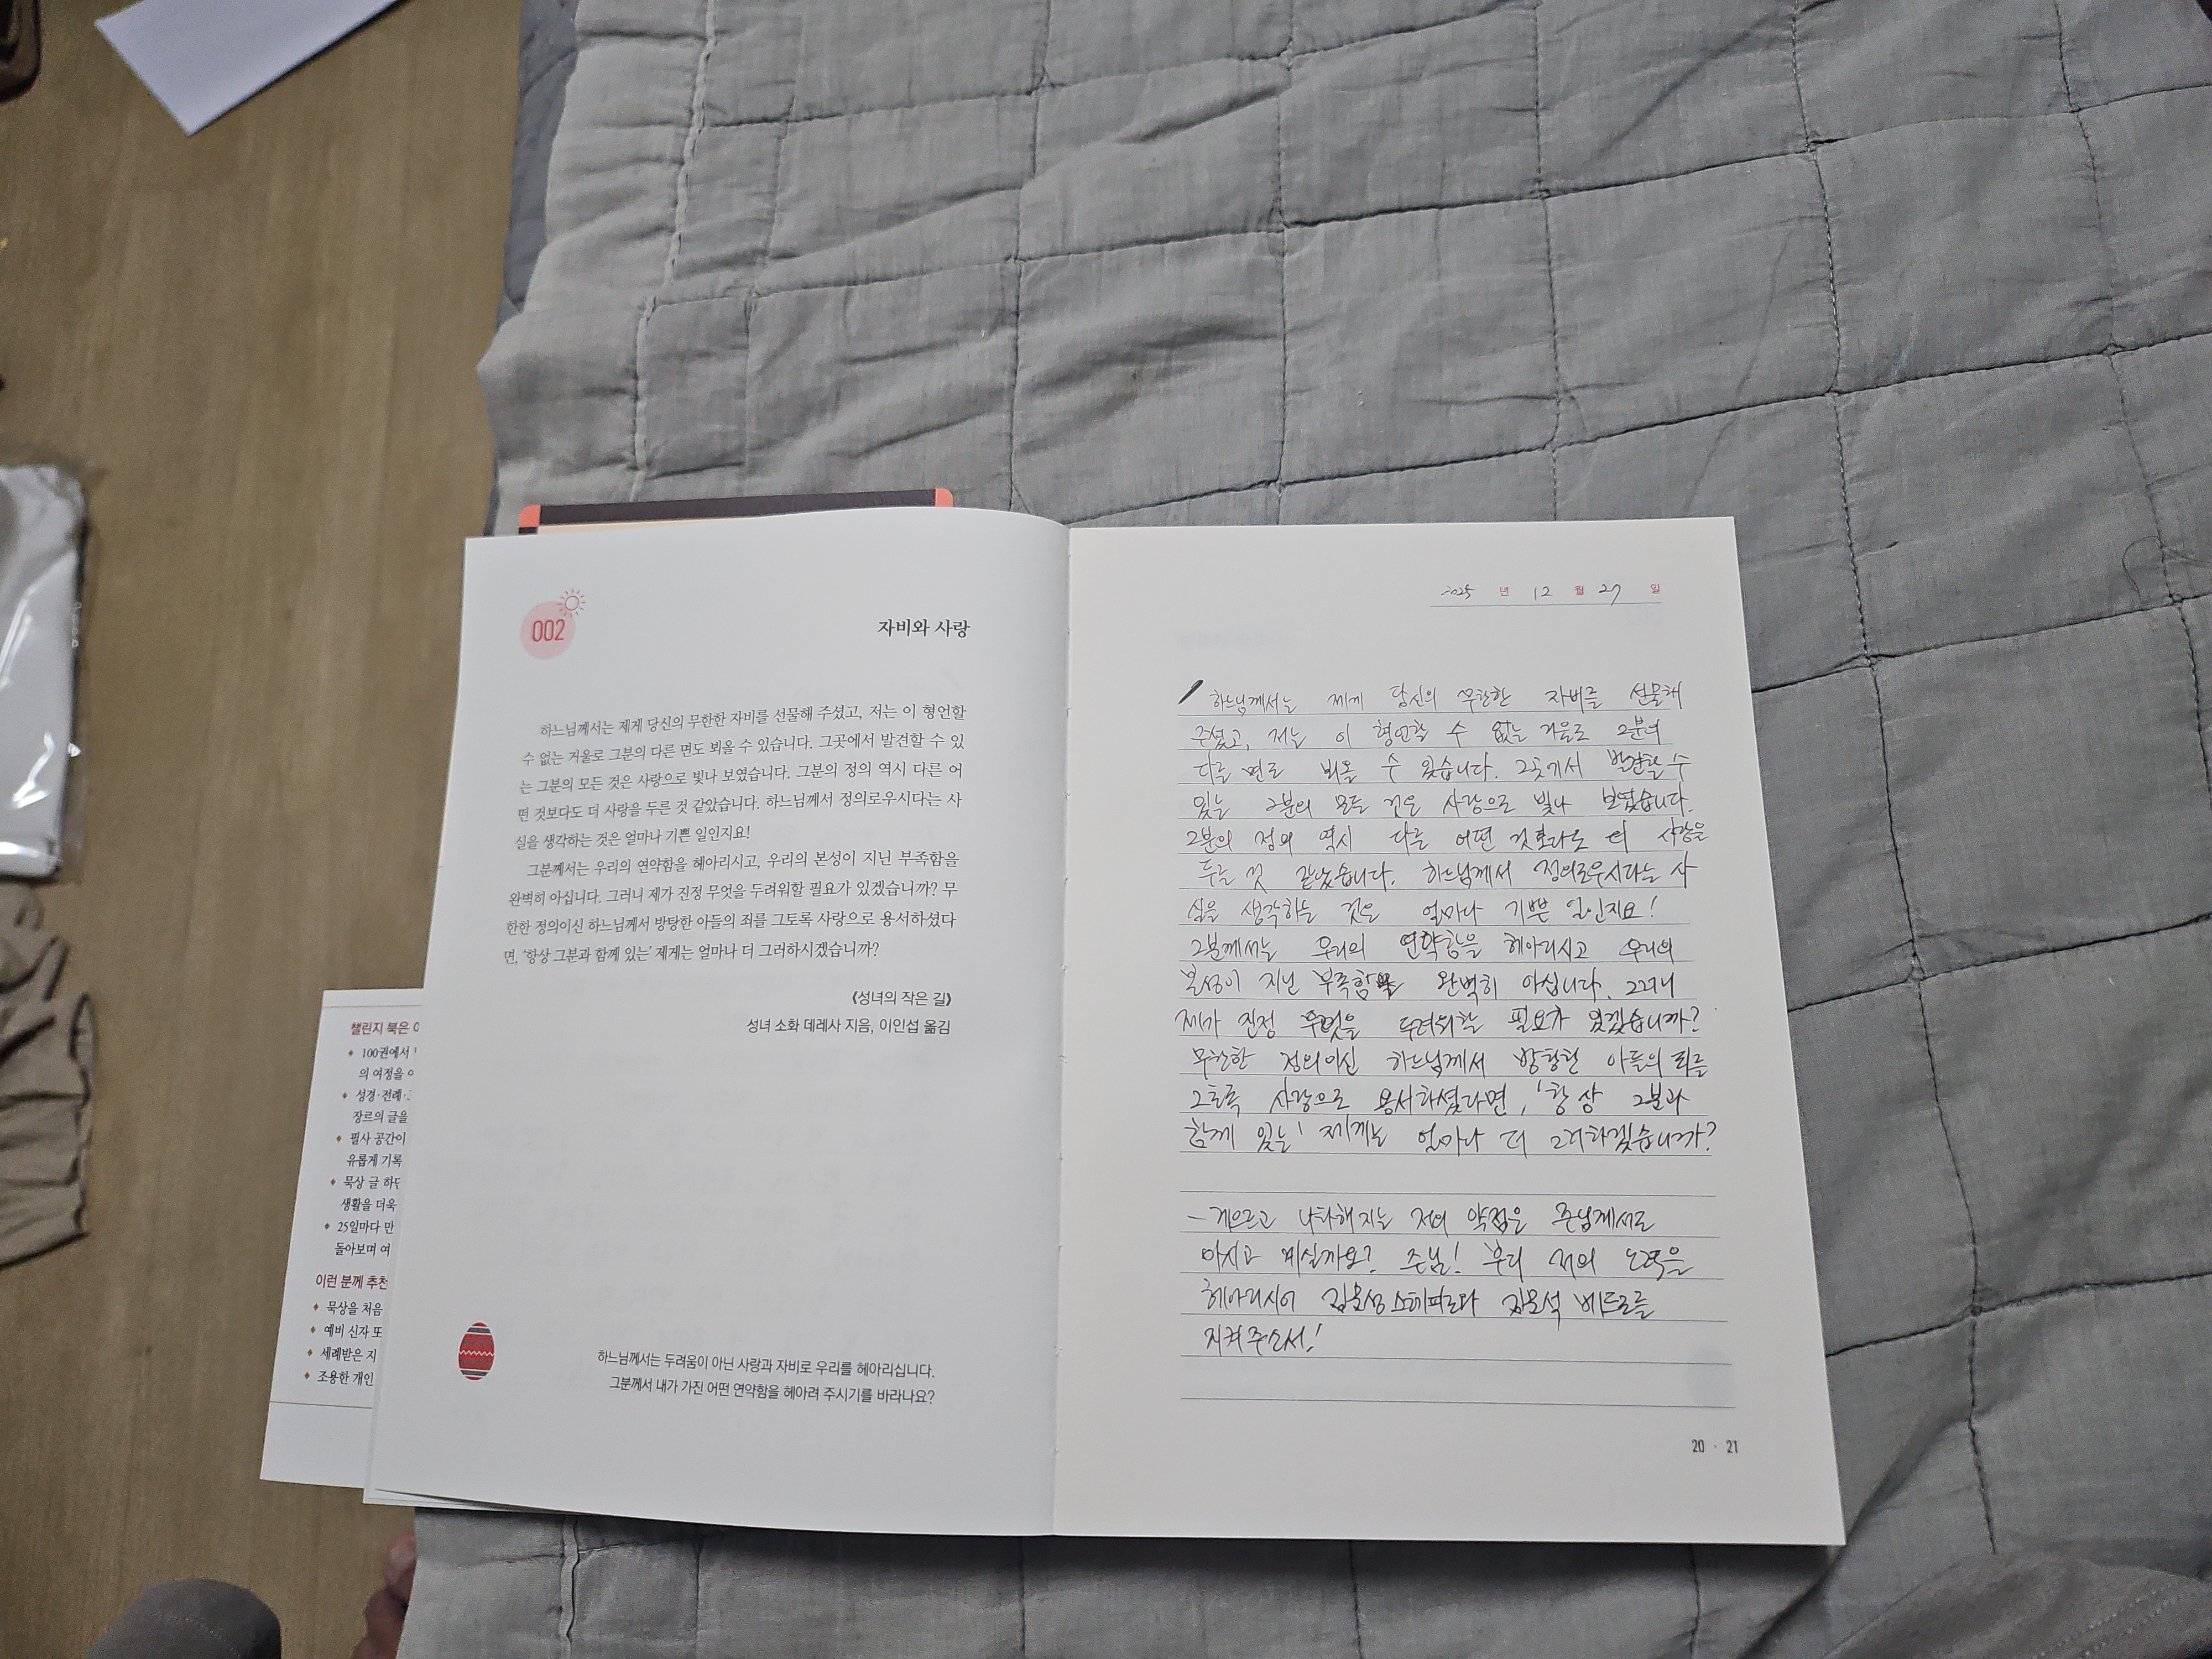 002
자비와 사랑
하느님께서는 제게 당신의 무한한 자비를 선물해 주셨고, 저는 이 형언할
수 없는 거울로 그분의 다른 면도 뵈올 수 있습니다. 그곳에서 발견할 수 있
는 그분의 모든 것은 사랑으로 빛나 보였습니다. 그분의 정의 역시 다른 어
떤 것보다도 더 사랑을 두른 것 같았습니다. 하느님께서 정의로우시다는 사
실을 생각하는 것은 얼마나 기쁜 일인지요!
그분께서는 우리의 연약함을 헤아리시고, 우리의 본성이 지닌 부족함을
완벽히 아십니다. 그러니 제가 진정 무엇을 두려워할 필요가 있겠습니까? 무
한한 정의이신 하느님께서 방탕한 아들의 죄를 그토록 사랑으로 용서하셨다
면, ‘항상 그분과 함께 있는’ 제게는 얼마나 더 그러하시겠습니까?
《성녀의 작은 길》
성녀 소화 데레사 지음, 이인섭 옮김
하느님께서는 두려움이 아닌 사랑과 자비로 우리를 헤아리십니다.
그분께서 내가 가진 어떤 연약함을 헤아려 주시기를 바라나요?
챌린지 북은
100권에서
의 여정을
성경·전례·
장르의 글을
필사 공간이
유롭게 기록
묵상 글 하단
생활을 더욱
25일마다 만
돌아보며 여
이런 분께 추천
묵상을 처음
예비 신자 또
세례받은 지
조용한 개인
2025 년 12 월 27 일
하느님께서는 제게 당신의 무한한 자비를 선물해
주셨고, 저는 이 형언할 수 없는 거울로 그분의
다른 면도 뵈올 수 있습니다. 그곳에서 발견할 수
있는 그분의 모든 것은 사랑으로 빛나 보였습니다.
그분의 정의 역시 다른 어떤 것보다도 더 사랑을
두른 것 같았습니다. 하느님께서 정의로우시다는 사
실을 생각하는 것은 얼마나 기쁜 일인지요!
그분께서는 우리의 연약함을 헤아리시고 우리의
본성이 지닌 부족함을 완벽히 아십니다. 그러니
제가 진정 무엇을 두려워할 필요가 있겠습니까?
무한한 정의이신 하느님께서 방탕한 아들의 죄를
그토록 사랑으로 용서하셨다면, '항상 그분과
함께 있는' 제게는 얼마나 더 그러하겠습니까?
- 게으르고 나태해지는 저의 약점은 주님께서도
아시고 계실까요? 주님! 부디 저의 노력을
헤아리시어 스테파노와 베드로를
지켜주소서!
20 · 21